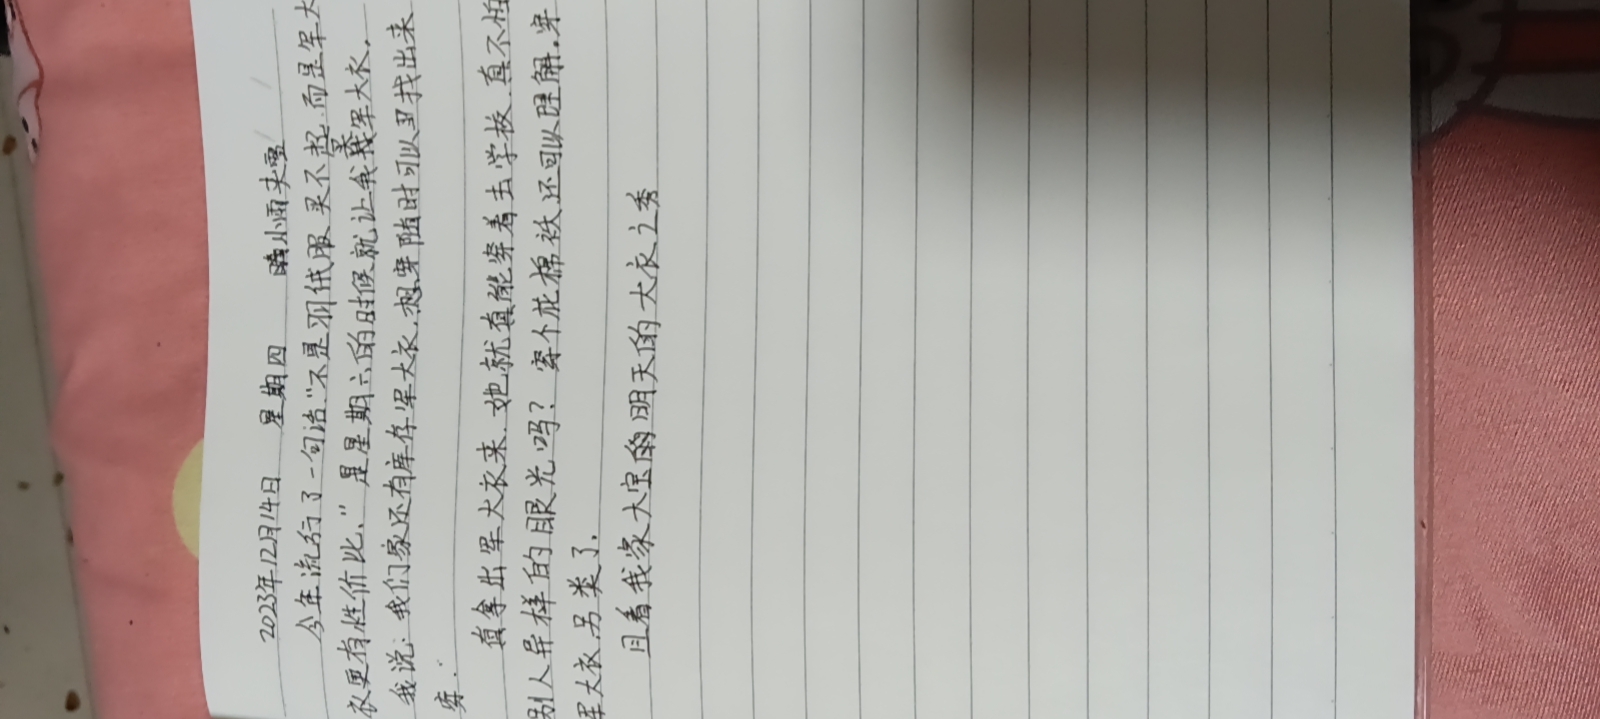 2023年12月14日 星期四 晴小雨夹雪
今年流行了一句话:"不是羽绒服买不起,而是军大
衣更有性价比."是星期六的时候就让我买军大衣,
我说:我们家还有库存军大衣,想穿随时可以找出来
穿.
真拿出军大衣来.她就真能穿着去学校.真不怕
别人异样的眼光吗?穿个花棉袄还可以理解.穿
军大衣,另类了.
且看我家大宝的明天的大衣之秀